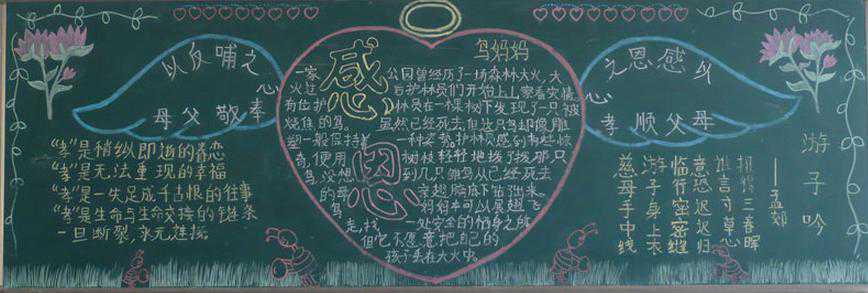 以反哺之
心
奉敬父母
"孝"是稍纵即逝的眷恋
"孝"是无法重现的幸福
"孝"是一失足成千古恨的往事
"孝"是生命与生命交接的链条
一旦断裂,永无连接。
感恩
鸟妈妈
一家公园曾经历了一场森林大火,大
火过后护林员们开始上山察看灾情
有位护林员在一棵树下发现了一只被
烧焦的鸟。虽然已经死去,但这只鸟却像雕
塑一般保持着一种姿势,护林员感到有些惊
奇,便用树枝轻轻地拨了拨那只
鸟,没想到几只雏鸟从已经死去
的母鸟翅膀底下钻出来。
妈妈本可以展翅飞
走,找一处安全的栖身之所
但它不愿意把自己的
孩子丢在大火中。
以感恩之
心
孝顺父母
游子吟
——孟郊
慈母手中线
游子身上衣
临行密密缝
意恐迟迟归
谁言寸草心
报得三春晖